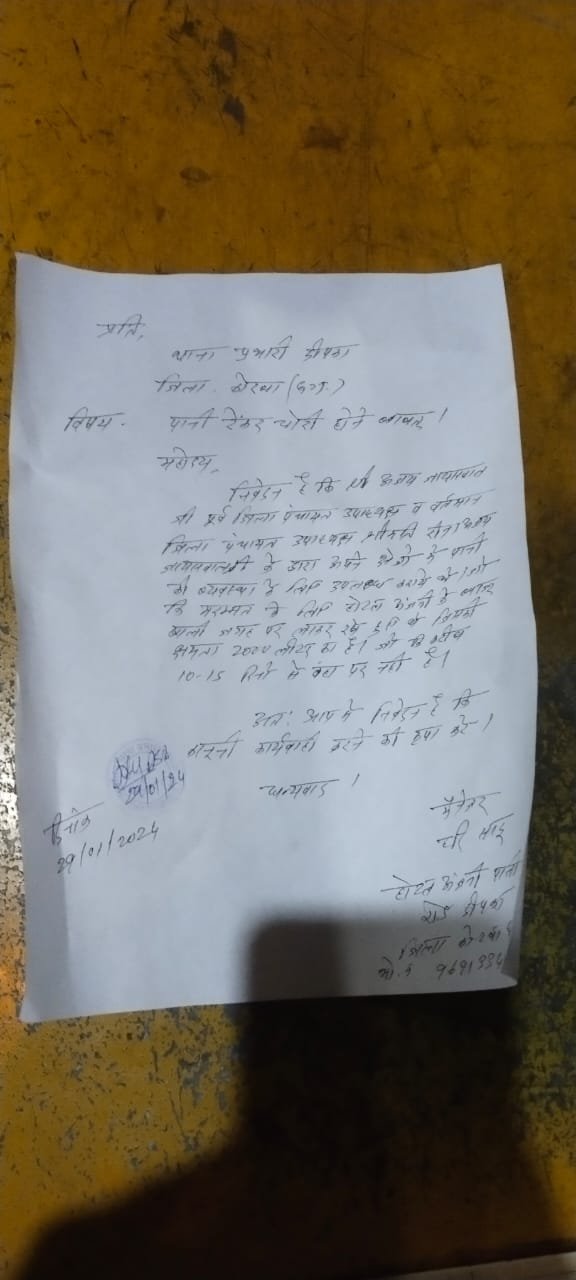 प्रति,
थाना प्रभारी दीपका
जिला - कोरबा (छ.ग.)
विषय - पानी टेंकर चोरी होने बाबत् ।
महोदय,
निवेदन है कि अजय जायसवाल
जी पूर्व जिला पंचायत उपाध्यक्ष व वर्तमान
जिला पंचायत उपाध्यक्ष श्रीमति रीना अजय
जायसवाल जी के द्वारा अपने क्षेत्रो मे पानी
की व्यवस्था के लिए उपलब्ध कराये थे । जो
कि मरम्मत के लिए होटल अंजनी के बाजू
खाली जगह पर लाकर रखे जिसकी
क्षमता 2000 लीटर का है। जो कि करीब
10-15 दिनो से वहा पर नही है।
अतः आप से निवेदन है कि
कानूनी कार्यवाही करने की कृपा करें ।
धन्यवाद ।
29/01/24
दिनांक
29/01/2024
मैनेजर
होटल अंजनी पाली
रोड दीपका
जिला कोरबा
मो. न. 9691334